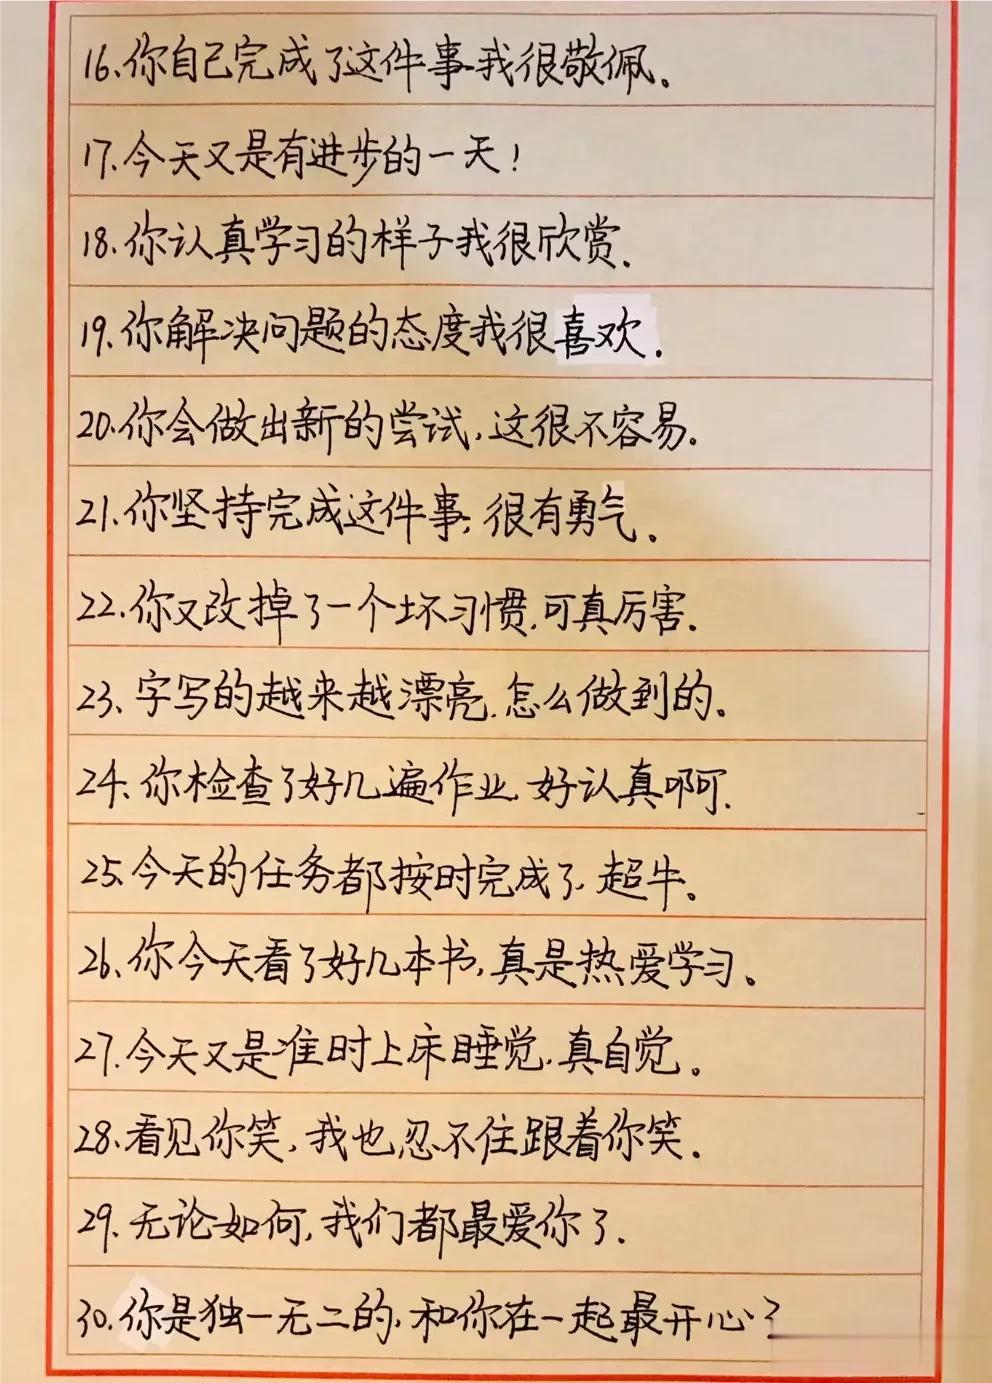 16、你自己完成了这件事我很敬佩。
17、今天又是有进步的一天！
18、你认真学习的样子我很欣赏.
19、你解决问题的态度我很喜欢.
20、你会做出新的尝试,这很不容易。
21、你坚持完成这件事,很有勇气。
22、你又改掉了一个坏习惯,可真厉害.
23、字写的越来越漂亮,怎么做到的。
24、你检查了好几遍作业,好认真啊.
25、今天的任务都按时完成了,超牛。
26、你今天看了好几本书,真是热爱学习。
27、今天又是准时上床睡觉,真自觉。
28、看见你笑,我也忍不住跟着你笑.
29、无论如何,我们都最爱你了.
30、你是独一无二的,和你在一起最开心